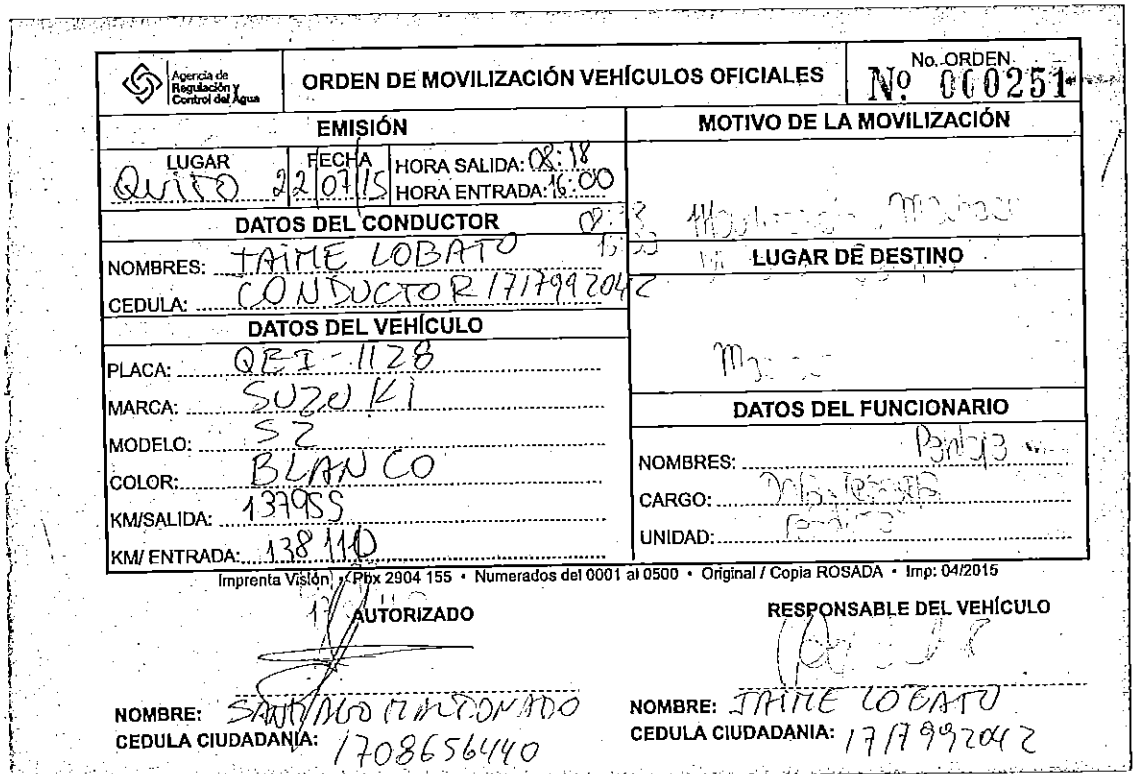 Agencia de
Regulación y
Control del Agua
ORDEN DE MOVILIZACIÓN VEHÍCULOS OFICIALES
No. ORDEN
Nº 000251
EMISIÓN
LUGAR FECHA HORA SALIDA: 08:18
Quito 22 07 15 HORA ENTRADA: 16:00
DATOS DEL CONDUCTOR
NOMBRES: JAIME LOBATO
CEDULA: CONDUCTOR 1717992042
DATOS DEL VEHÍCULO
PLACA: QEI-1128
MARCA: SUZUKI
MODELO: SZ
COLOR: BLANCO
KM/SALIDA: 137955
KM/ ENTRADA: 138110
MOTIVO DE LA MOVILIZACIÓN
LUGAR DE DESTINO
DATOS DEL FUNCIONARIO
NOMBRES:
CARGO:
UNIDAD:
Imprenta Visión • Pbx 2904 155 • Numerados del 0001 al 0500 • Original / Copia ROSADA • Imp: 04/2015
AUTORIZADO
NOMBRE: SANTIAGO MALDONADO
CEDULA CIUDADANIA: 1708656440
RESPONSABLE DEL VEHÍCULO
NOMBRE: JAIME LOBATO
CEDULA CIUDADANIA: 1717992042